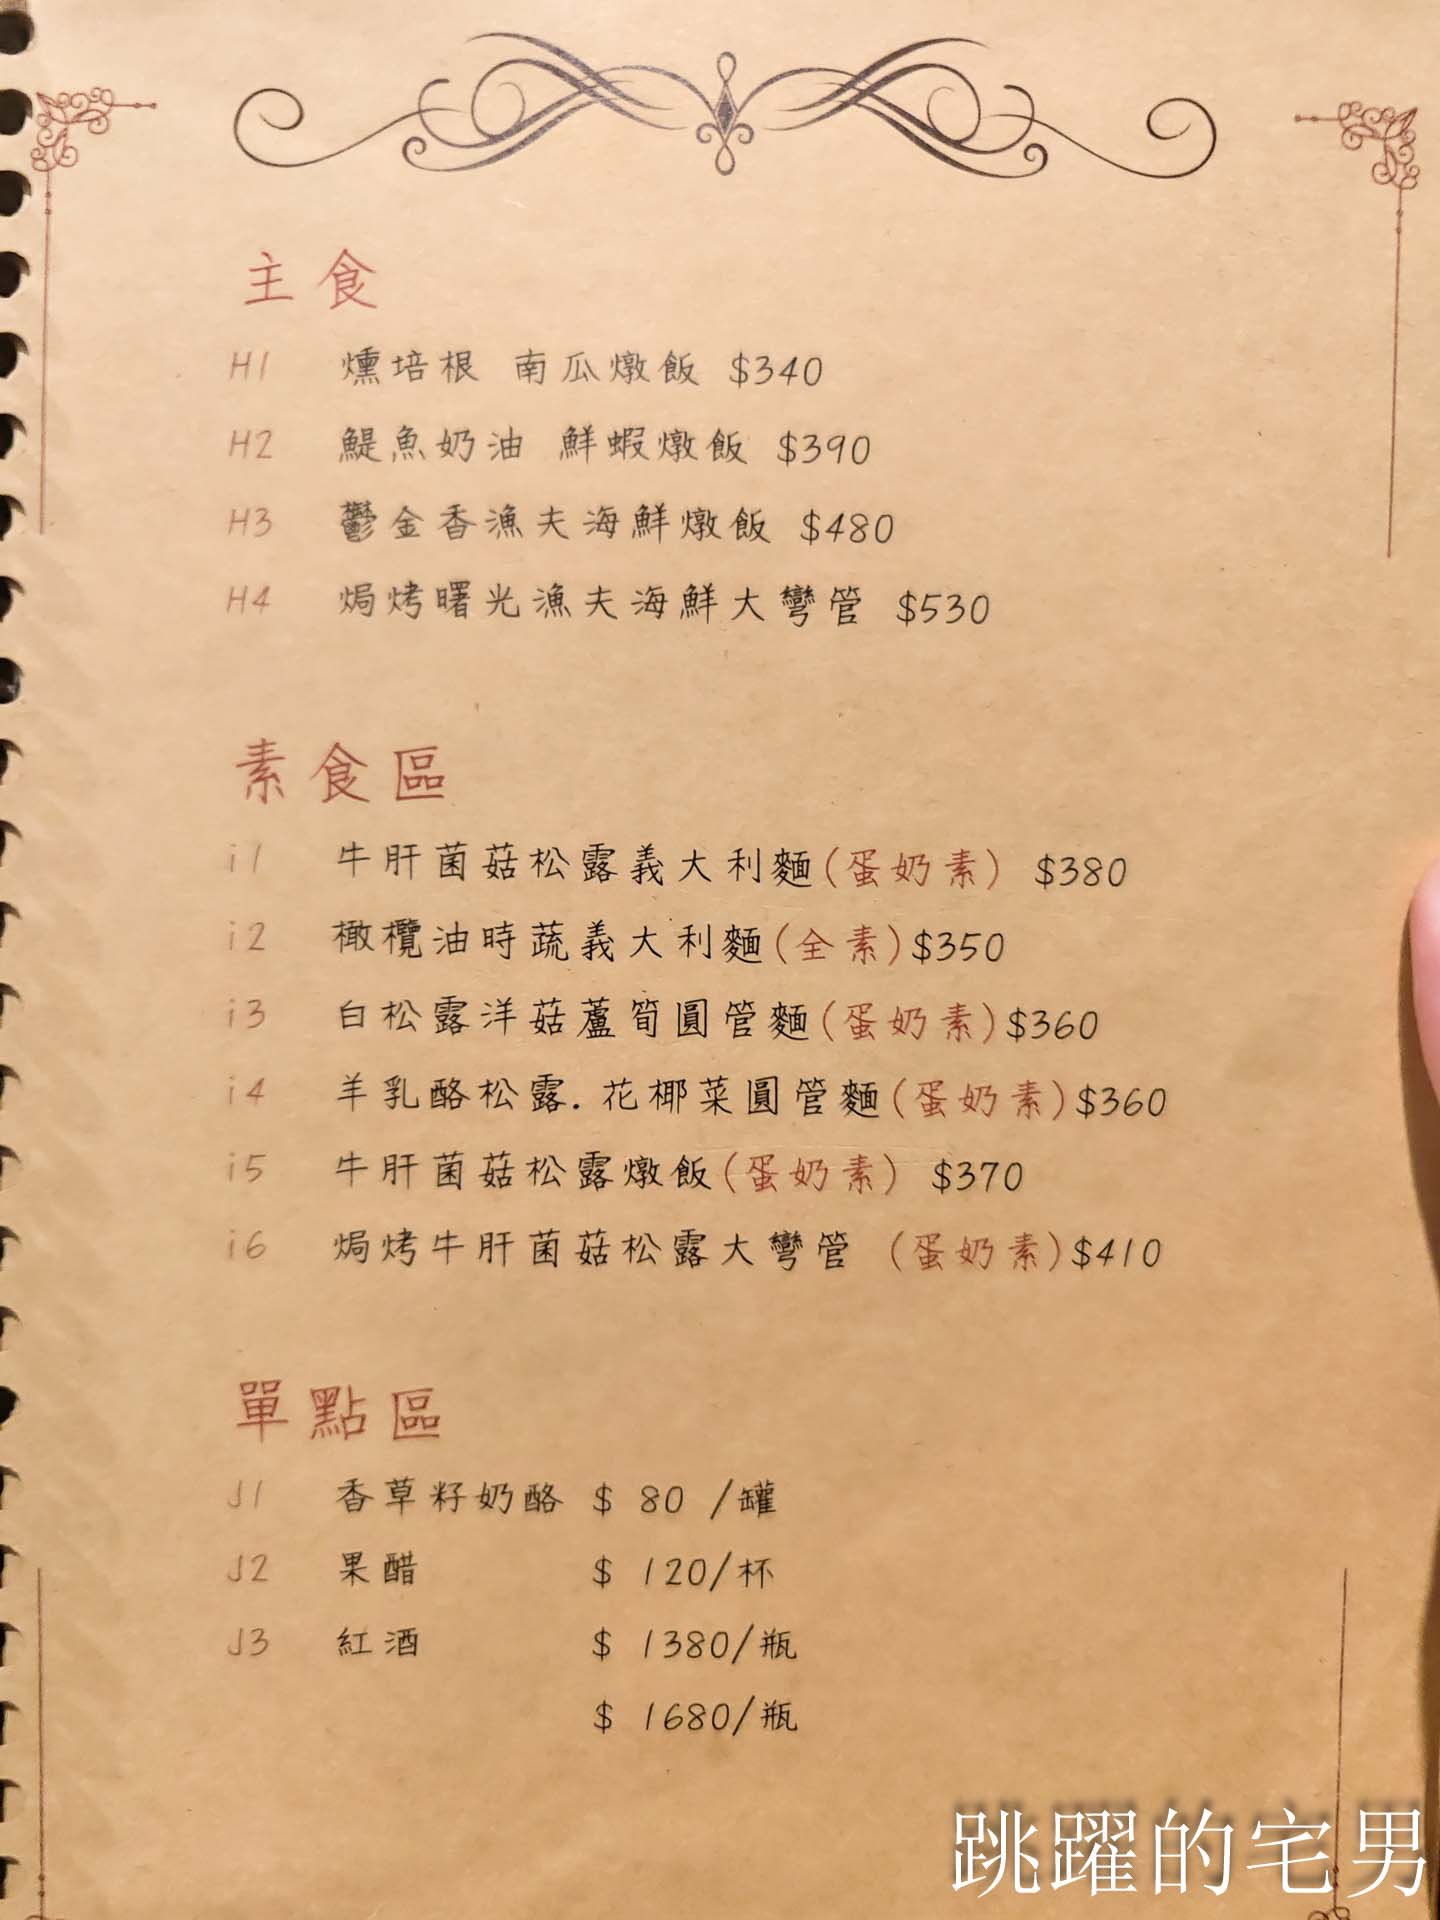 主食
H1 燻培根 南瓜燉飯 $340
H2 鯷魚奶油 鮮蝦燉飯 $390
H3 鬱金香漁夫海鮮燉飯 $480
H4 焗烤曙光漁夫海鮮大彎管 $530
素食區
i1 牛肝菌菇松露義大利麵(蛋奶素) $380
i2 橄欖油時蔬義大利麵(全素)$350
i3 白松露洋菇蘆筍圓管麵(蛋奶素)$360
i4 羊乳酪松露.花椰菜圓管麵(蛋奶素)$360
i5 牛肝菌菇松露燉飯(蛋奶素) $370
i6 焗烤牛肝菌菇松露大彎管 (蛋奶素)$410
單點區
J1 香草籽奶酪 $ 80 /罐
J2 果醋 $ 120/杯
J3 紅酒 $ 1380/瓶
$ 1680/瓶
跳躍的宅男